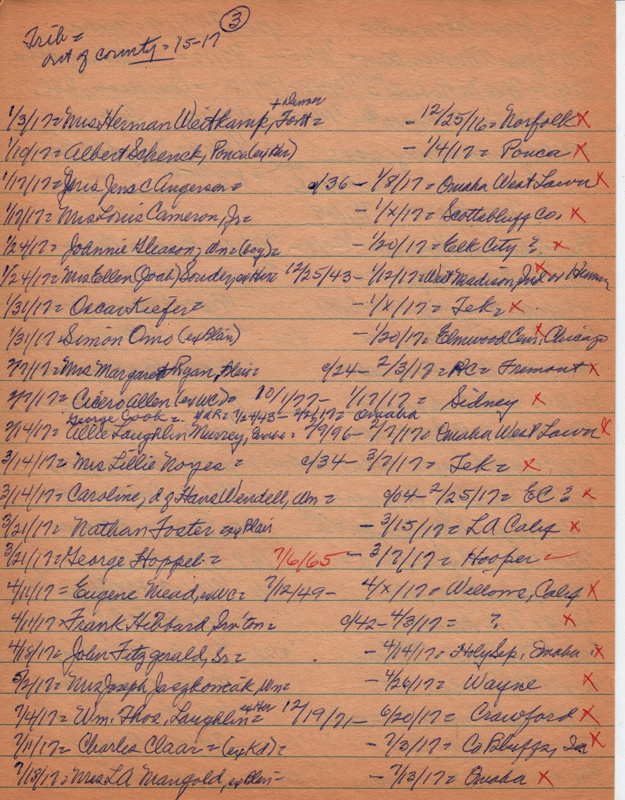 3
Trib =
out of county = 15-17
+ Denver
1/3/17 = Mrs Herman Weitkamp, Font = - 12/25/16 = Norfolk X
1/10/17 = Albert Schenck, Ponca (ex Her) - 1/4/17 = Ponca X
1/17/17 = Jens C Anderson = c/36 - 1/8/17 = Omaha West Lawn X
1/17/17 = Mrs Louis Cameron, Jr = - 1/x/17 = Scottsbluff Co. X
1/24/17 = Johnnie Gleason, (boy) = - 1/20/17 = Elk City ? X
1/24/17 = Mrs Ellen (Joah) Souder, ex Her 12/25/43 - 1/12/17 = West Madison, or X
1/31/17 = Oscar Kiefer = - 1/x/17 = Tek = X
1/31/17 = Simon Omo (ex Blair) - 1/20/17 = Elmwood Cem, Chicago X
2/7/17 = Mrs Margaret Ryan, Blair = c/24 - 2/3/17 = RC = Fremont X
2/7/17 = Cicero Allen (ex WC) = 10/1/77 - 1/17/17 = Sidney X
George Cook = = 1/24/43 - Omaha
2/14/17 = Allie Laughlin Murrey, = 7/9/96 - 2/7/17 = Omaha West Lawn X
3/14/17 = Mrs Lillie Noyes = c/34 - 3/7/17 = Tek = X
3/14/17 = Caroline, d of Hans Wendell, = c/04 - 2/25/17 = EC ? X
3/21/17 = Nathan Foster ex Blair - 3/15/17 = LA Calif X
3/21/17 = George Hoppel = 7/6/65 - 3/7/17 = Hooper ✓
4/11/17 = Eugene Mead, ex WC = 7/12/49 - 4/x/17 = Willows, Calif X
4/11/17 = Frank Hibbard, = c/42 - 4/3/17 = ? X
4/18/17 = John Fitzgerald, Sr = - 4/14/17 = Holy Sep, Omaha X
5/2/17 = Mrs Joseph Jaszkomcak, = - 4/26/17 = Wayne X
7/4/17 = Wm. Thos. Laughlin = ex Her 12/19/71 - 6/20/17 = Crawford X
7/11/17 = Charles Claar = (ex Kd) = - 7/3/17 = Co Bluffs, Ia X
7/18/17 = Mrs LA Mangold, ex Blair - - 7/13/17 = Omaha X